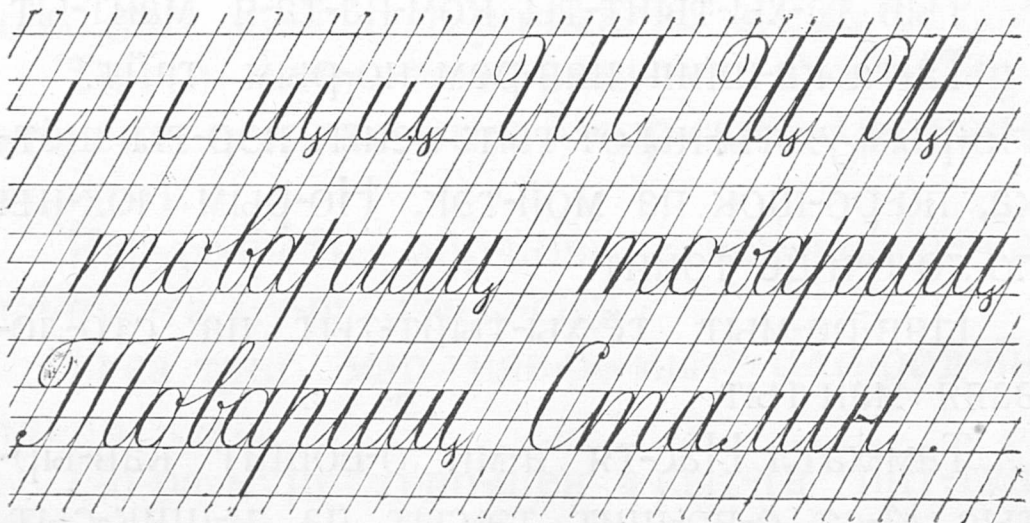 щ щ Щ Щ
товарищ товарищ
Товарищ Сталин.